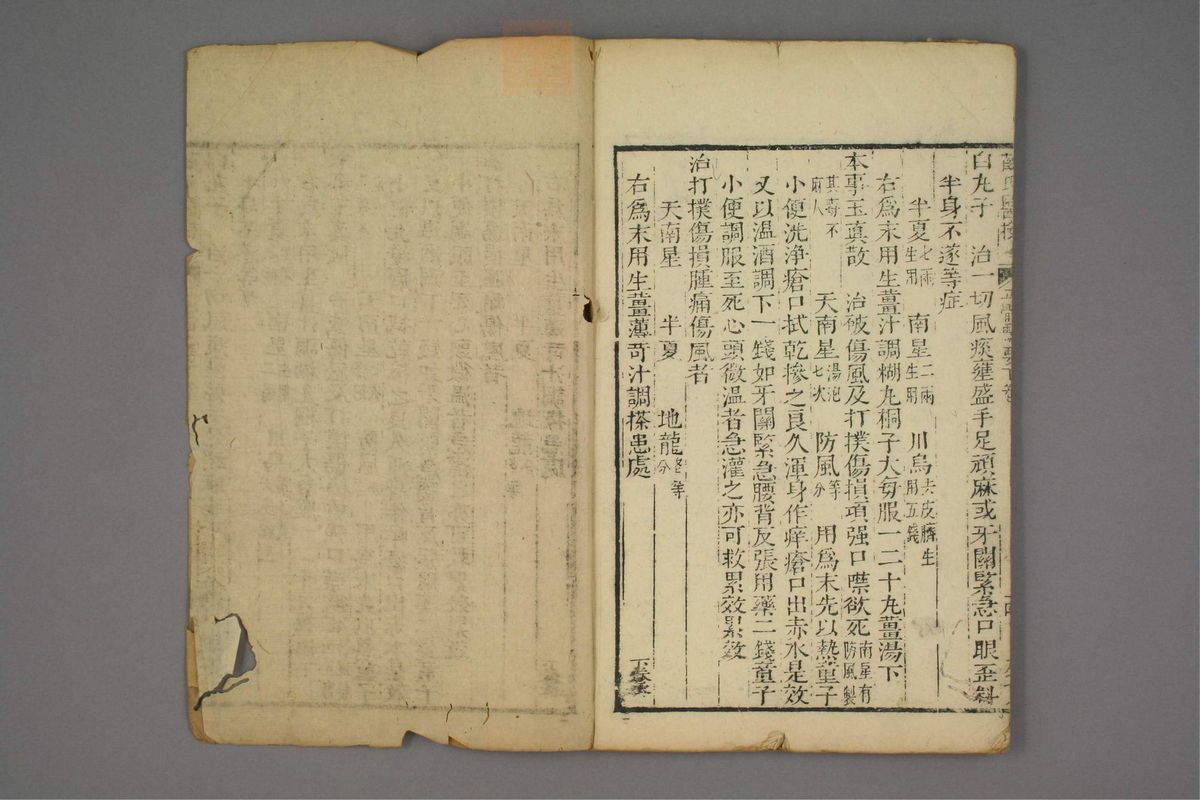 白丸子　治一切風痰壅盛手足頑麻或牙關緊急口眼歪斜
半身不遂等症
半夏七兩生用　南星二兩生用　川烏去皮臍生用五錢
右爲末用生薑汁調糊丸桐子大每服一二十丸薑湯下
本事玉眞散　治破傷風及打撲傷損項强口噤欲死南星有防風製
其毒不麻人　天南星湯泡七次　防風等分　用爲末先以熱童子
小便洗淨瘡口拭乾摻之良久渾身作痒瘡口出赤水是效
又以温酒調下一錢如牙關緊急腰背反張用藥二錢童子
小便調服至死心頭微温者急灌之亦可救累效累效
治打撲傷損腫痛傷風者
天南星　半夏　地龍各等分
右爲末用生薑薄苛汁調搽患處
下卷終